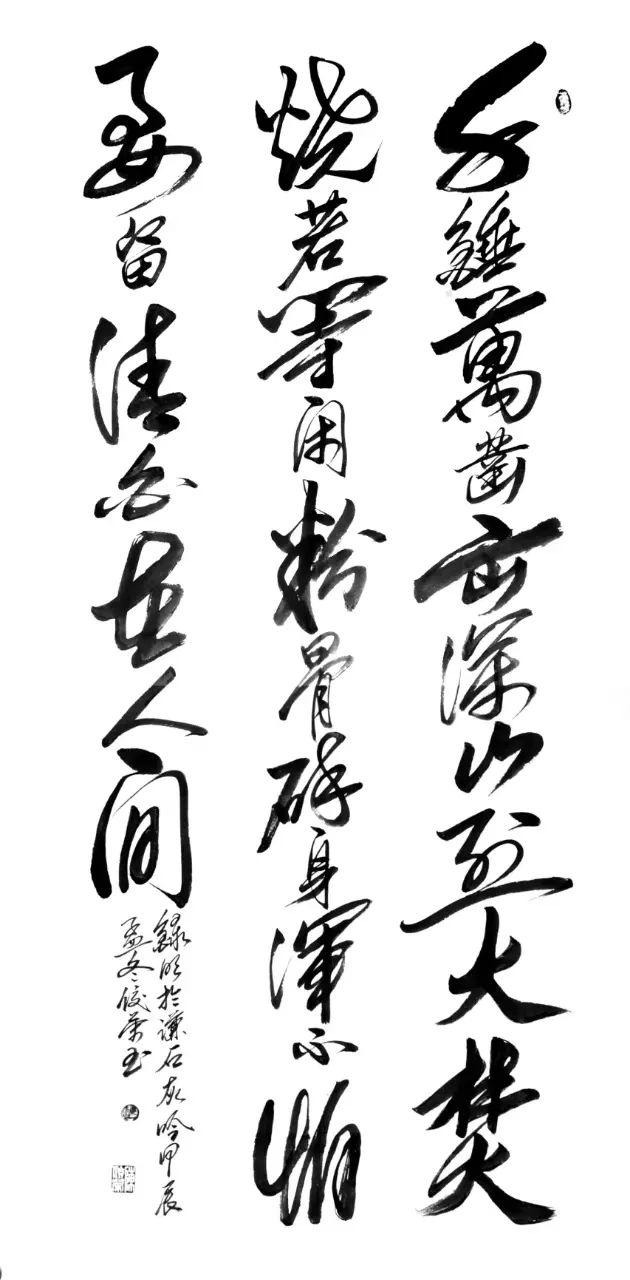 千錘萬凿出深山烈火焚
烧若等闲粉骨碎身渾不怕
要留清白在人间
録明於謙石灰吟甲辰
孟冬